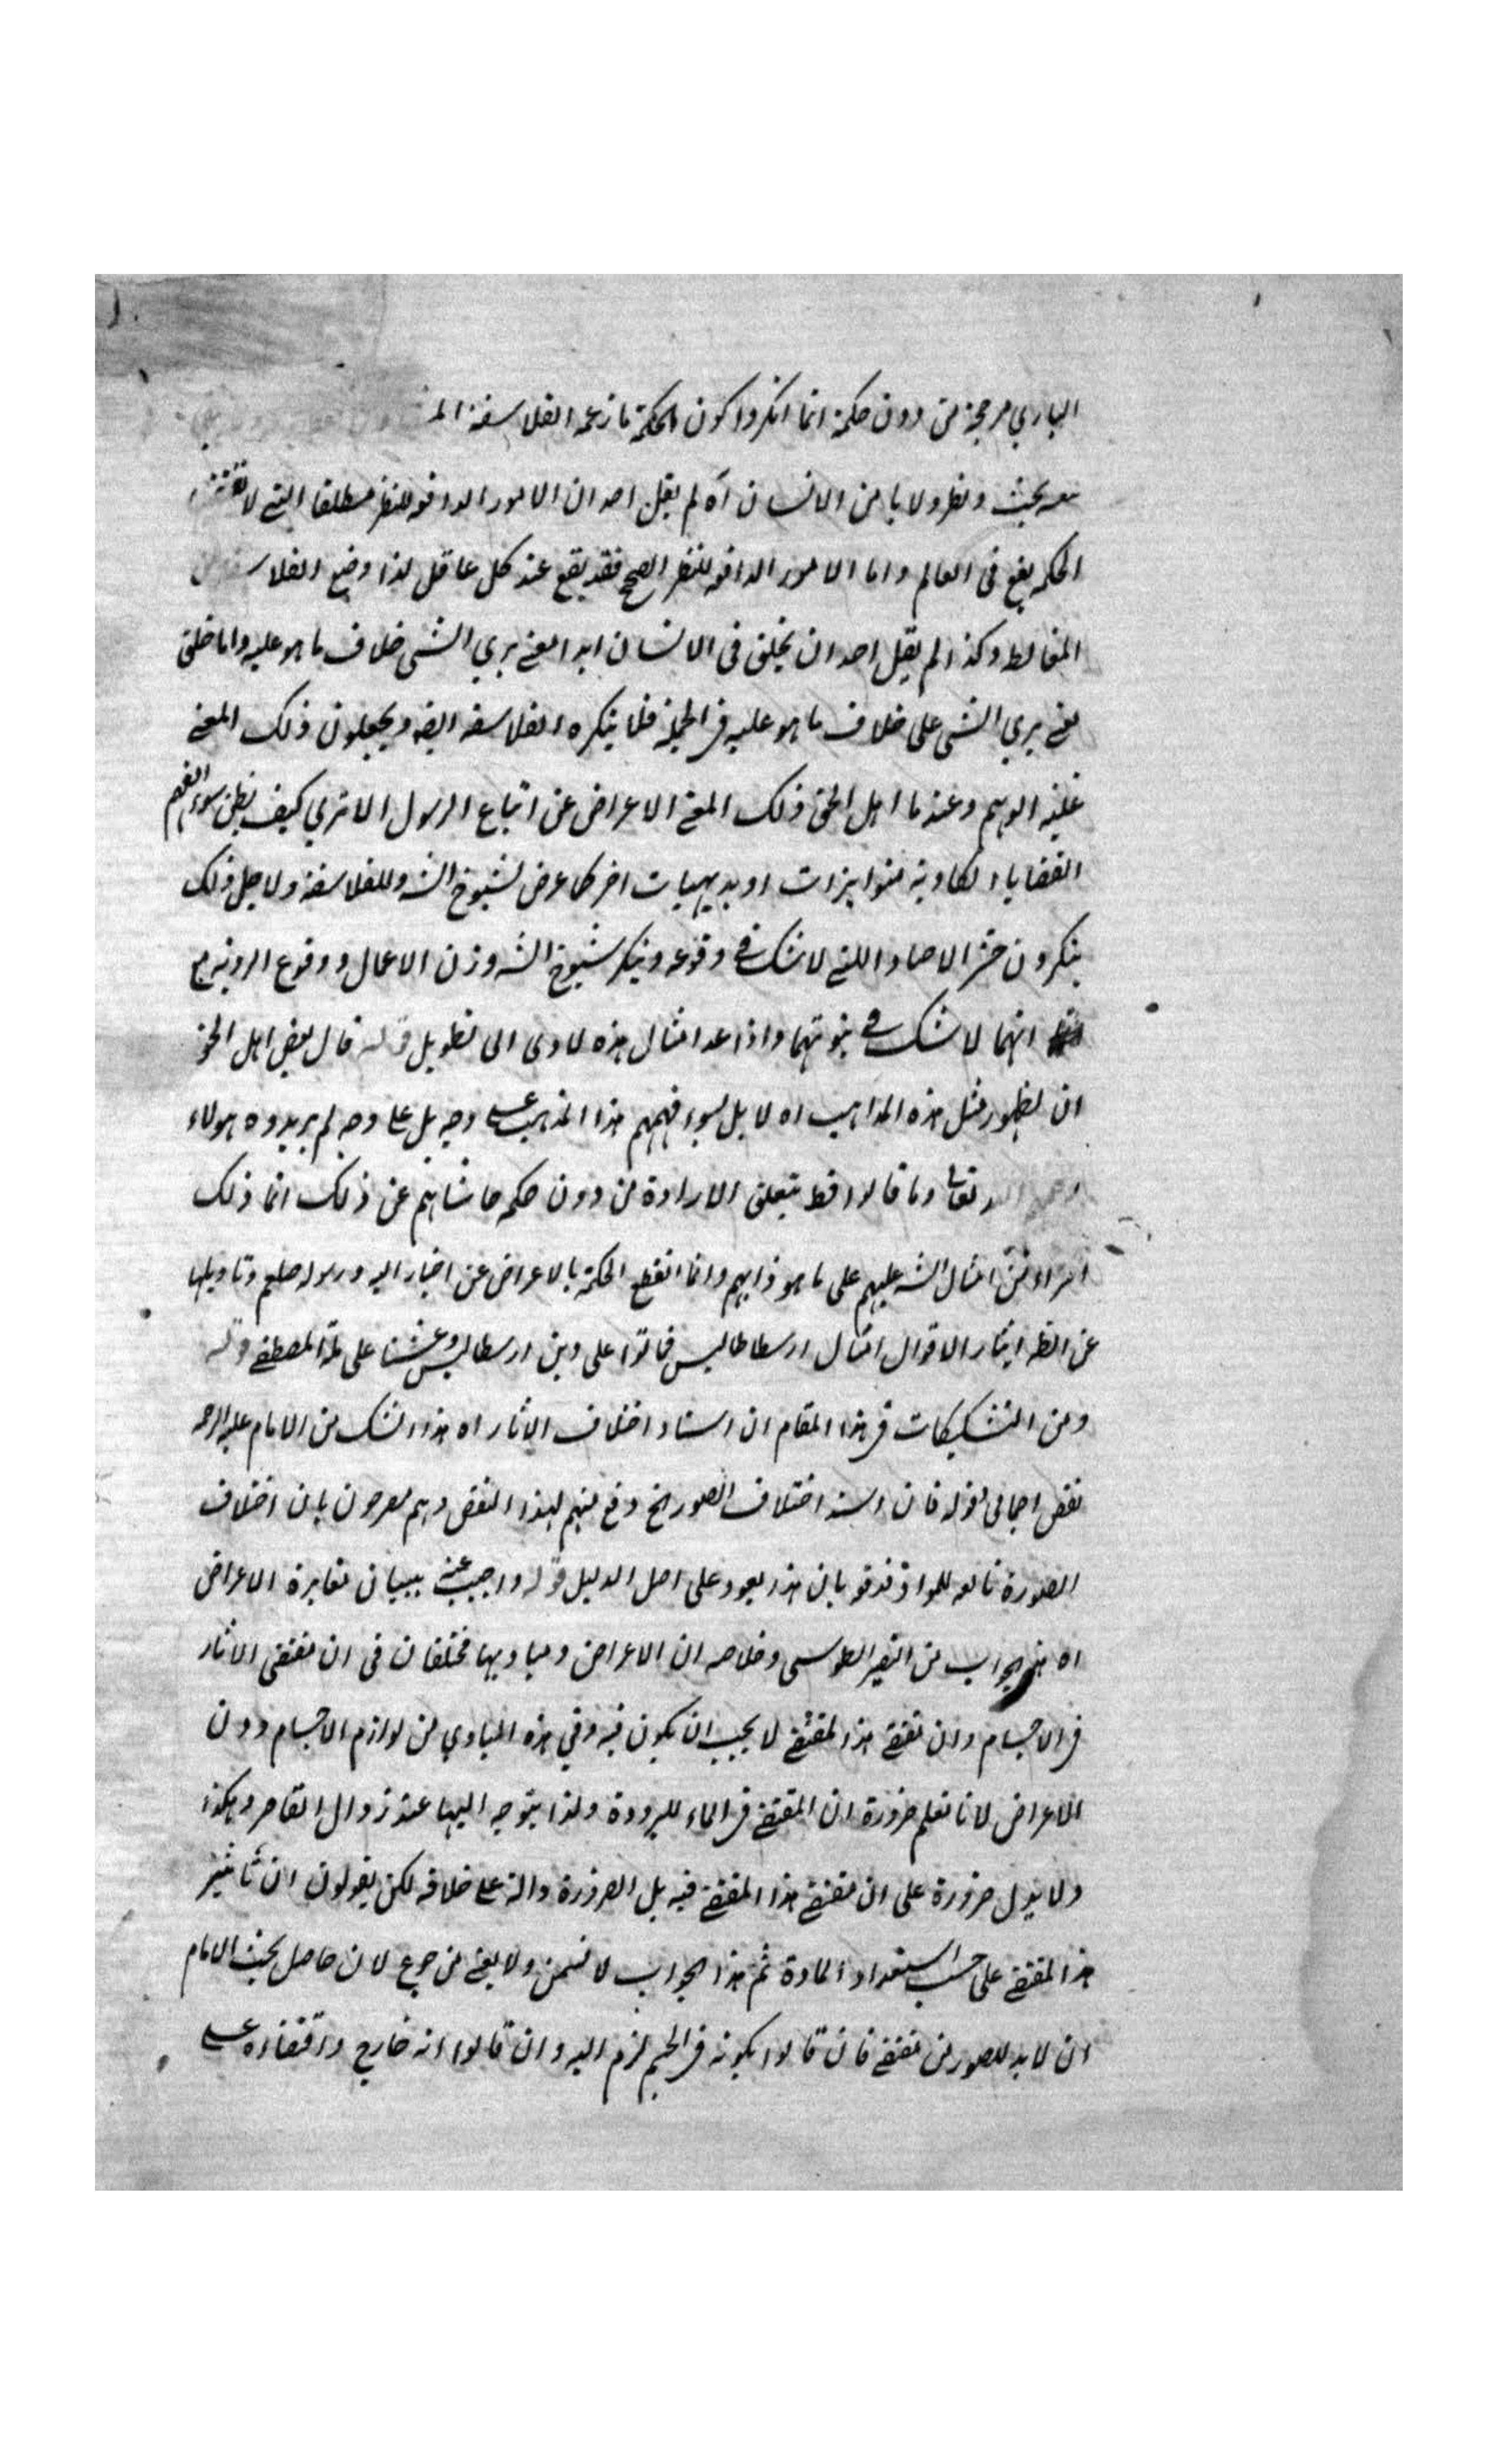 الباري مرجحة من دون حكمة انما انكروا كون الحكمة ما زعمه الفلاسفة
معه بحث ونظر ولا يا من والانسان آه لم يقل احد ان الامور الدافعه للنظر مطلقا التي لا
الحكمه يقع فى العالم واما الامور الدافعه للنظر الصحيح فقد يقع عند كل عاقل لذا وضع الفلاسفه
المغالط وكذا لم يقل احد ان يخلق فى الانسان ابدا معنى يري الشى خلاف ما هو عليه واما خلق
معنى يري الشى على خلاف ما هو عليه فى الجملة فلا ينكره الفلاسفه ايضه ويجعلون ذلك المعنى
غلبة الوهم وعندنا اهل الحق ذلك المعنى الاعراض عن اتباع الرسول الا تري كيف يظن سوء الفهم
القضايا الكاذبة متواترات او بديهيات اخر كما عرض لشيوخ الشـ وللفلاسفة ولاجل ذلك
ينكرون حشر الاجساد اللتى لا شك فى وقوعه وينكر شيوخ الشـ وزن الاعمال ووقوع الروية مع
انهما لا شك فى ثبوتهما واذا عد امثال هذه لادى الى تطويل قوله قال بعض اهل الحق
ان لظهور مثل هذه المذاهب اه لا بل لسوء فهمهم هذا المذهب على وجه بل على وجه لم يريدوه هولاء
تعالى وما قالوا قط بتعلق الارادة من دون حكمه حاشاهم عن ذلك انما ذلك
افتراء من امثال الشـ عليهم على ما هو ذابهم وانما انقطع الحكمة بالاعراض عن اخبار الله ورسوله صلعم وتاويلها
عن الظـ ايثار الاقوال امثال ارسطاطاليس فماتوا على دين ارسطاليس وعشنا على ملة المصطفى قوله
ومن التشكيكات فى هذا المقام ان اسناد اختلاف الاثار اه هذا الشك من الامام عليه الرحمه
نقض اجمالى قوله فان اسند اختلاف الصور الخ دفع منهم لهذا النقض وهم معرحون بان اختلاف
الصورة تابعه للمواد فدفعه بان هذا يعود على اصل الدليل قوله واجيب عنه ببيان مغايرة الاعراض
اه هذا الجواب من النصير الطوسى وخلاصه ان الاعراض ومباديها مختلفان فى ان مقتضى الاثار
فى الاجسام وان مقتضى هذا المقتضى لا يجب ان يكون فيه وفي هذه المبادي من لوازم الاجسام دون
الاعراض لانا نعلم ضرورة ان المقتضى فى الماء للبرودة ولذا يتوجه اليها عند زوال القاسر وهكذا
ولا يدل ضرورة على ان مقتضى هذا المقتضى فيه بل الضرورة دالة على خلافه لكن يقولون ان تاثير
هذا المقتضى على حسب استعداد المادة ثم هذا الجواب لا يسمن ولا يغنى من جوع لان حاصل بحث الامام
ان لابد للصور من مقتضى فان قالوا بكونه فى الجسم لزم التسـ وان قالوا انه خارج واقتضاءه على